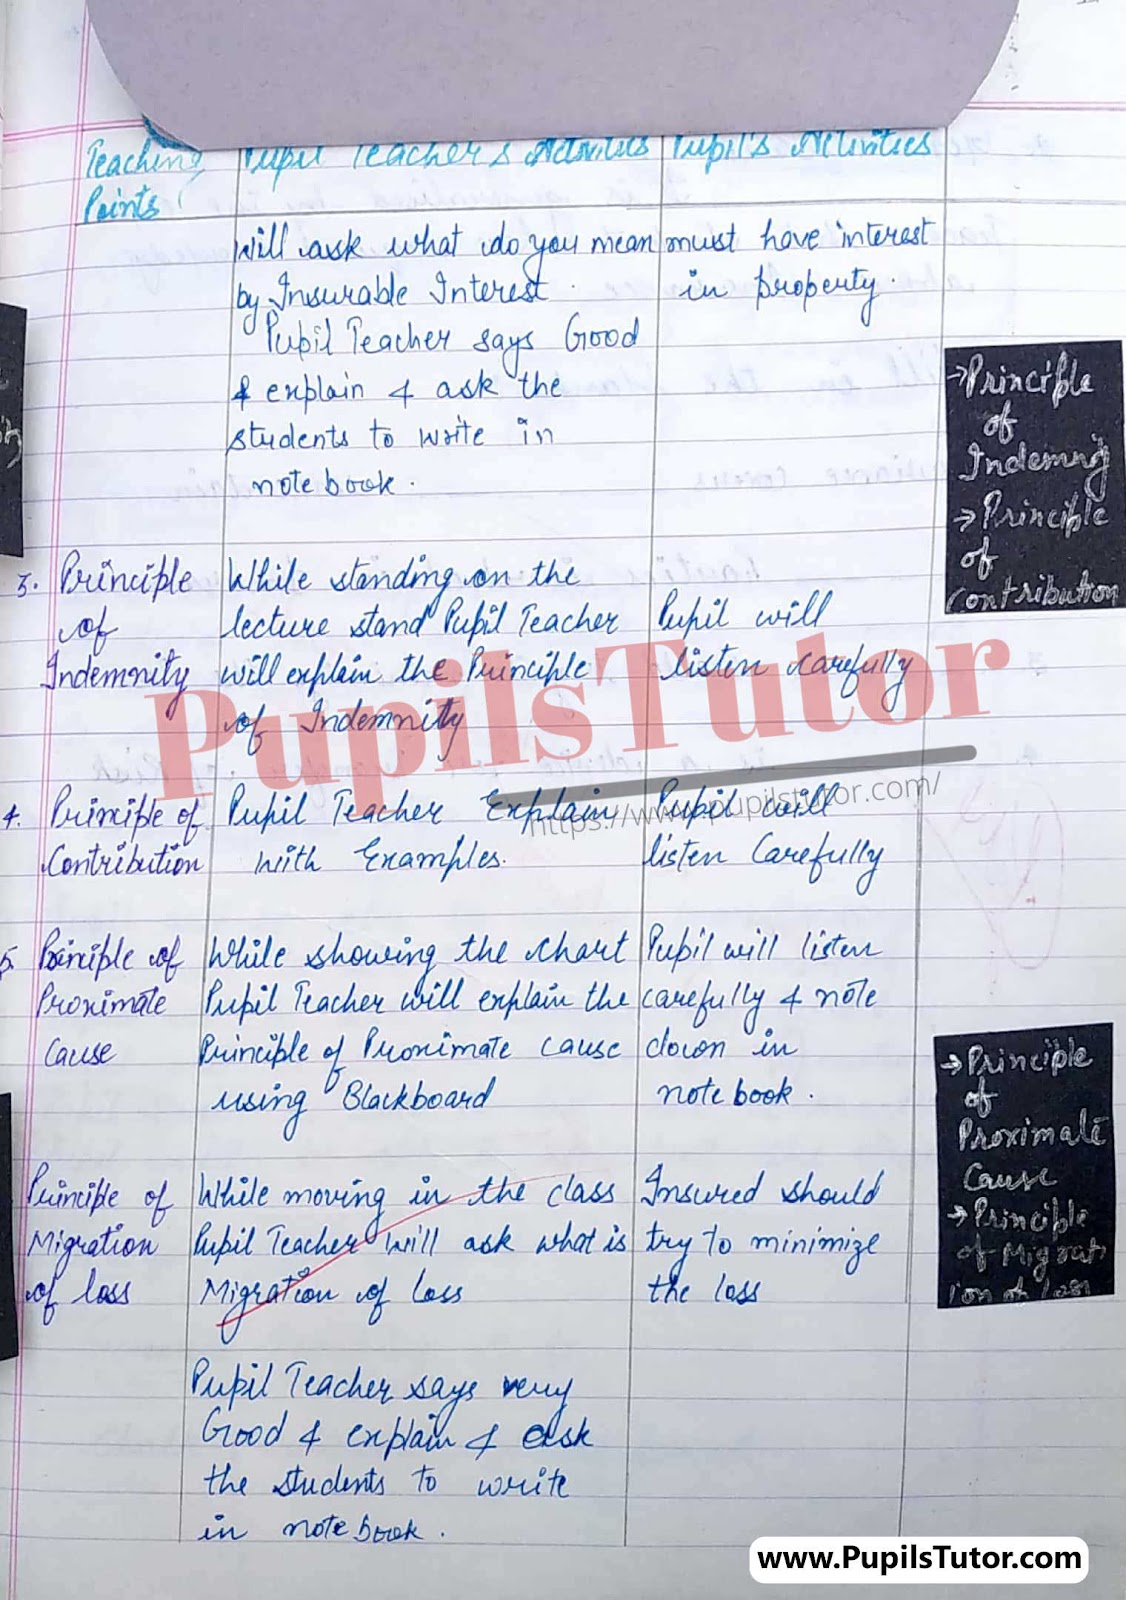 Teaching Points
Pupil Teacher's Activities
Pupil's Activities
Will ask what do you mean
by Insurable Interest.
Pupil Teacher says Good
& explain & ask the
students to write in
notebook.
must have interest
in property.
→Principle
of
Indemnity
→Principle
of
Contribution
3. Principle
of
Indemnity
While standing on the
lecture stand Pupil Teacher
will explain the Principle
of Indemnity
Pupil will
listen carefully
PupilsTutor
https://www.pupilstutor.com/
4. Principle of
Contribution
Pupil Teacher Explain
with Examples.
Pupil will
listen Carefully
5. Principle of
Proximate
Cause
While showing the chart
Pupil Teacher will explain the
Principle of Proximate cause
using Blackboard
Pupil will listen
carefully & note
down in
notebook.
→Principle
of
Proximate
Cause
→Principle
of Migrat
ion of loan
Principle of
Migration
of loss
While moving in the class
Pupil Teacher will ask what is
Migration of Loss
Insured should
try to minimize
the loss
Pupil Teacher says very
Good & explain & ask
the students to write
in notebook.
www.PupilsTutor.com